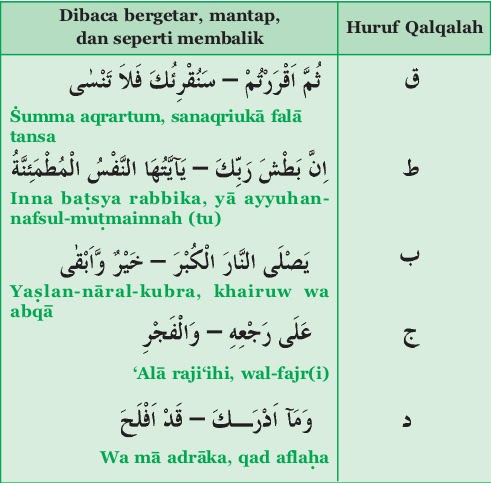 Dibaca bergetar, mantap,
dan seperti membalik
Huruf Qalqalah
ثُمَّ اَقْرَرْتُمْ – سَنُقْرِئُكَ فَلاَ تَنْسٰى
ق
Ṡumma aqrartum, sanaqriukā falā
tansa
اِنَّ بَطْشَ رَبِّكَ – يَآيَّتُهَا النَّفْسُ الْمُطْمَئِنَّةُ
ط
Inna baṭsya rabbika, yā ayyuhan-
nafsul-muṭmainnah (tu)
يَصْلَى النَّارَ الْكُبْرَ – خَيْرٌ وَّاَبْقٰى
ب
Yaṣlan-nāral-kubra, khairuw wa
abqā
عَلَى رَجْعِهِ – وَالْفَجْرِ
ج
‘Alā raji‘ihi, wal-fajr(i)
وَمَآ اَدْرَـــكَ – قَدْ اَفْلَحَ
د
Wa mā adrāka, qad aflaḥa